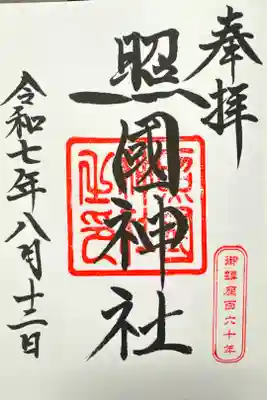 奉拝
照國神社
令和七年八月十二日
御鎮座百六十年